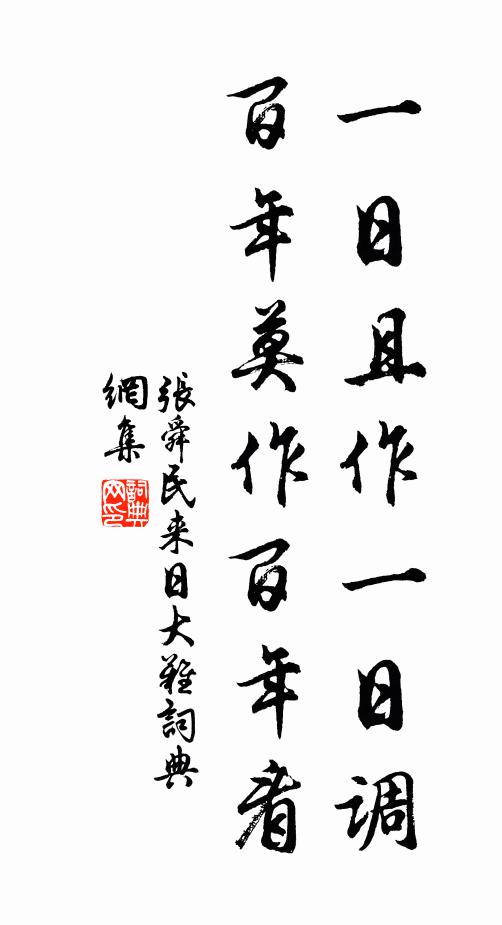 一日且作一日調
百年莫作百年看
張舜民来日大難詞典
網集
詞典
网印